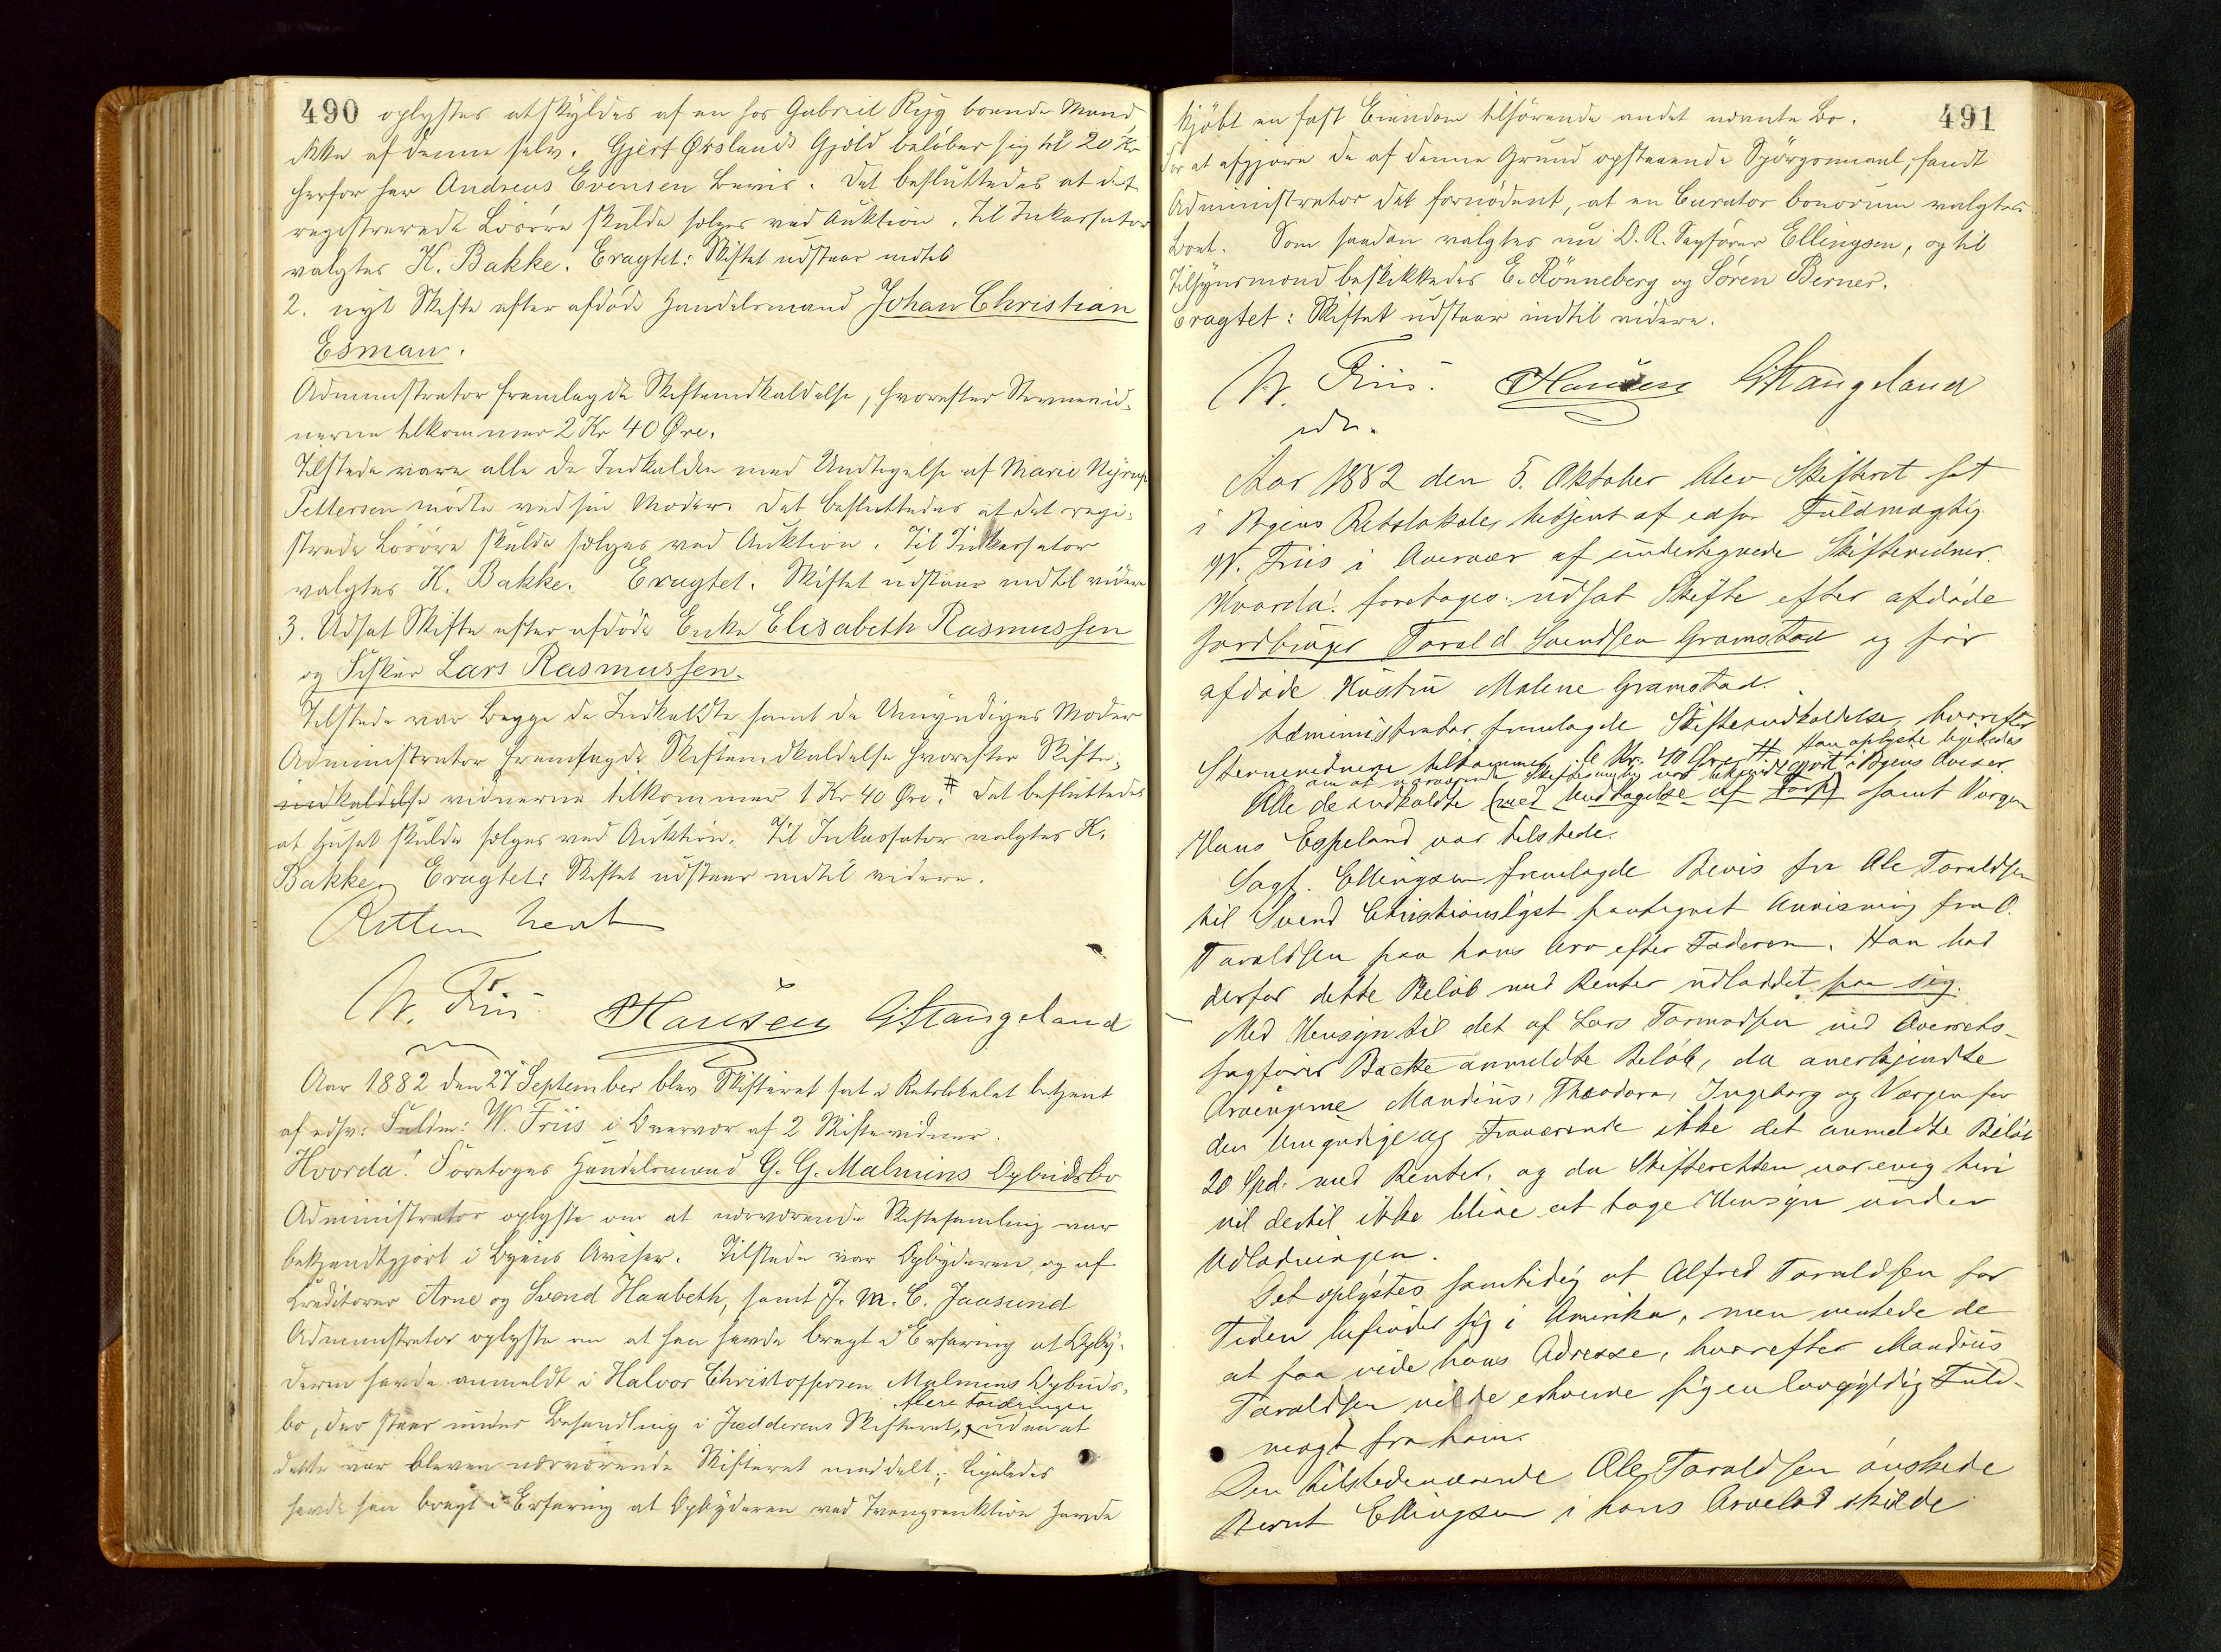 490 oplystes at skyldes af en hos Gabriel Ryg boende Mand
ikke af denne selv. Gjert Ørslands Gjæld beløber sig til 20 Kr
herfor har Andreas Evensen Bevis. Det besluttedes at det
registrerede Løsøre skulde sælges ved Auktion. Til Inkassator
valgtes K. Bakke. Eragtet: Skiftet udstaar indtil
2. nyt Skifte efter afdøde Handelsmand Johan Christian
Esman.
Administrator fremlagde Skifteindkaldelse, hvorefter Stevnevid-
nerne tilkommer 2 Kr 40 Øre.
Tilstede vare alle de Indkaldte med Undtagelse af Marie Nyrup
Pettersen mødte ved sin Moder. Det besluttedes at det regi-
strede Løsøre skulde sælges ved Auktion. Til Inkassator
valgtes K. Bakke. Eragtet. Skiftet udstaar indtil videre
3. Udsat Skifte efter afdøde Enke Elisabeth Rasmussen
og Fisker Lars Rasmussen.
Tilstede var Begge de Indkaldte samt de Umyndiges Moder
Administrator fremlagde Skifteindkaldelse hvorefter Skifte-
indkaldelse vidnerne tilkommer 1 Kr 40 Øre. # Det besluttedes
at Huset skulde sælges ved Auktion. Til Inkassator valgtes K.
Bakke. Eragtet: Skiftet udstaar indtil videre.
Retten hevt
W. Friis. Hansen G Stangeland
Aar 1882 den 27 September blev Skifteret sat i Retslokalet betjent
af edsv: Fuldm: W. Friis i Overvær af 2 Skiftevidner.
Hvorda! Foretoges Handelsmand G. G. Malmins Opbudsbo
Administrator oplyste om at nærværende Skiftesamling var
bekjendtgjort i Byens Aviser. Tilstede var Opbyderen, og af
Kreditorer Arne og Svend Haabeth, samt J. M. C. Jaasund
Administrator oplyste om at han havde bragt i Erfaring at Opby-
deren havde anmeldt i Halvor Christophersen Malmins Opbuds-
flere Fordringer
bo, der staar under Behandling i Jædderens Skifteret, uden at
dette var bleven nærværende Skifteret meddelt; ligeledes
havde han bragt i Erfaring at Opbyderen ved Tvangsauktion havde
491
kjøbt en fast Eiendom tilhørende andet nævnte Bo.
For at afgjøre de af denne Grund opstaaende Spørgsmaal, fandt
Administrator det fornødent, at en Curator bonorum valgtes
Boet. Som saadan valgtes nu O. R. Sagfører Ellingsen, og til
Tilsynsmænd beskikkedes E. Rønneberg og Søren Berner.
Eragtet: Skiftet udstaar indtil videre.
W. Friis. Hansen G Stangeland
Aar 1882 den 5. Oktober blev Skifteret sat
i Byens Retslokale, betjent af edsv. Fuldmægtig
W. Friis i Overvær af undertegnede Skiftevidner.
Hvorda! foretages: udsat Skifte efter afdøde
Gardbruger Torald Svendsen Gramstad og før
afdøde Hustru Malene Gramstad.
Administrator fremlagde Skifteindkaldelse, hvorefter
Stevnevidnerne tilkommer 6 Kr. 40 Øre. # Han oplyste ligeledes
om at nærværende Skiftesamling var bekjendtgjort i Byens Aviser
Alle de indkaldte (med Undtagelse af Torp) samt Værgen
Hans Espeland var tilstede.
Sagf. Ellingsen fremlagde Bevis fra Ole Toraldsen
til Svend Christianslyst paategnet Anvisning fra O.
Taraldsen paa hans Arv efter Faderen. Han bad
derfor dette Beløb med Renter udloddet paa sig.
Med Hensyn til det af Lars Tormodsen ved Overrets-
sagfører Backe anmeldte Beløb, da anerkjendte
Arvingerne Mandius, Theodora, Ingeborg og Værgen for
den Umyndige og Fraværende ikke det anmeldte Beløb
20 Spd. med Renter, og da Skifteretten var enig heri
vil dertil ikke blive at tage Hensyn under
Udlodningen.
Det oplystes samtidig at Alfred Toraldsen for
Tiden befinder sig i Amerika, men ventede de
at faa vide hans Adresse, hvorefter Mandius
Taraldsen vilde erhverve sig en lovgyldig Fuld-
magt fra ham.
Den tilstedeværende Ole Toraldsen ønskede
Bernt Ellingsen i hans Arvelod skulde